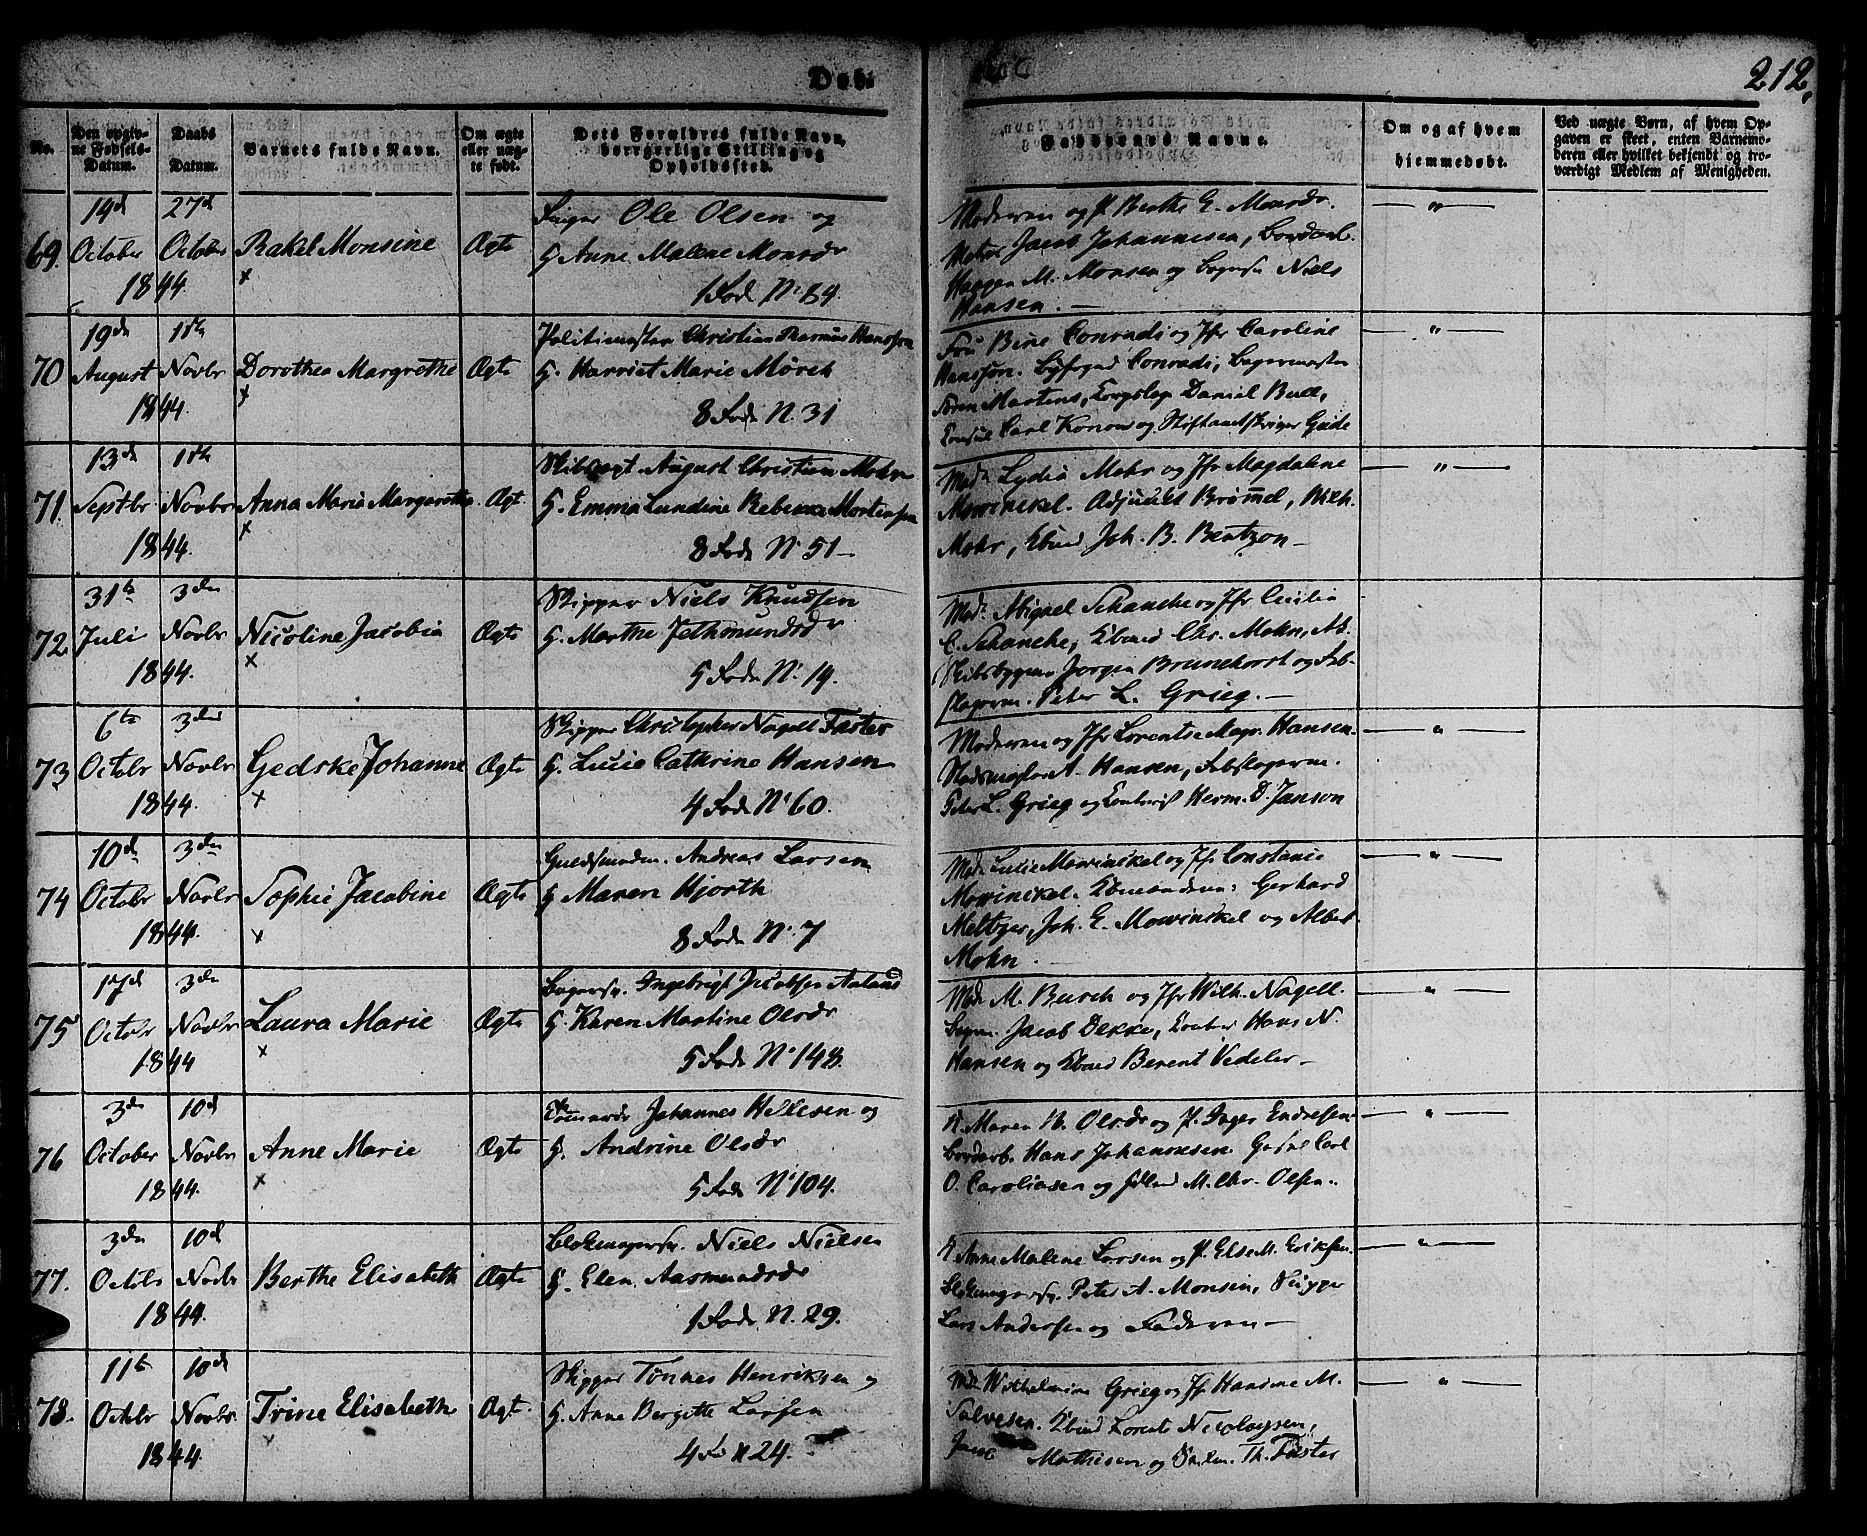 Døb
212.
No.
Den opgiv-
ne Fødsels-
Datum.
Daabs
Datum.
Barnets fulde Navn.
Om ægte
eller uæg-
te født.
Dets Forældres fulde Navn,
borgerlige Stilling og
Opholdssted.
Faddernes Navne.
Om og af hvem
hjemmedøbt.
Ved uægte Børn, af hvem Op-
gaven er skeet, enten Barnemo-
deren eller hvilket bekjendt og tro-
værdigt Medlem af Menigheden.
69. 19d October 1844 27d October 1844.
Rakel Monsine
x
Ægte
Ole Olsen og
G Anne Malene Monsdr
1 Fode No 84.
Moderen og P. Berthe G. Monsdr.
Jacob Johannesen, Bordarb.
Haggen M. Monsen og Niels
Hansen. —
— " —
70 19de August 1844. 1ste Novbr
Dorothea Margrethe
x
Ægte
Politimester Christian Rasmus Hanssen
G. Harriet Marie Mørch
8 Fode N. 31
Fru Bine Conradi og Jfr Caroline
Hanssøn. Byfoged Conradi, Bagermester
Søren Martens, Daniel Bull,
Consul Carl Konow og Stiftamtskriver Geide
— " —
71. 13de Septbr 1844. 1ste Novbr
Anna Maria Margaretha
x
Ægt.
August Christian Mohr
G. Emma Lundine Rebekka Mortensen
8 Fode No 51 —
Mad. Lydia Mohr og Jfr Magdalene
Mowinckel. Adjunkt Brømel, Wilh.
Mohr, Kbmd Joh. B. Bentzon —
— " —
72. 31te Juli 1844. 3den Novbr
Nicoline Jacobia
x
Ægte
Skipper Niels Knudsen
G. Marthe Jethmundsdr
5 Fode No. 19.
Mad. Abigael Schanche og Jfr Cecilia
C. Schanche, Kbmd Chr. Mohn,
Skibsbygger Jørgen Brunchorst og
Peter L. Grieg. —
73 6te Octobr 1844. 3die Novbr
Gedske Johanne
x
Ægte
Skipper Christopher Nagell Faster
G. Lucie Cathrine Hansen
4 Fode No 60.
Moderen og Jfr Lorentse Magr. Hansen.
A. Hansen,
Peter L. Grieg og Herm. D. Janson
— " —
74 10de Octobr 1844. 3den Novbr
Sophie Jacobine
x
Ægte
Guldsmeden. Andreas Larsen
G Maren Hjorth
8 Fode No. 7
Mad. Lucie Mowinckel og Jfr Constance
Mowinckel. Kbmændene: Gerhard
Meltzer, Joh. E. Mowinckel og Albert
Mohn.
— " —
75 17d Octobr 1844 3den Novbr
Laura Marie
x
Ægte
Bagersv. Ingebrigt Jacobsen Aaland
G. Karen Martine Olsdr
5 Fode No 148.
Mad. M. Busch og Jfr Wilh. Nagell.
Jacob Dekke, Hans N.
Hansen og Kbmd Berent Vedeler —
— " —
76 3de October 1844. 10d Novbr
Anne Marie
x
Ægte
Johannes Hellesen og
G. Andrine Olsdr
5 Fode No 104.
K. Maren H. Olsdr og P. Inger Endresen.
Bordarb. Hans Johannesen. Carl
O. Caroliusen og M. Chr. Olsen.
— " —
77. 3de Octbr 1844. 10d Novbr
Berthe Elisabeth
Ægte
Blokmagersv. Niels Nielsen
G. Elen Aasmundsdr
1 Fode N. 29.
K Anne Malene Larsen og P. Else M. Eriksen.
Blokmagersv. Peter A. Monsen, Skipper
Lars Andersen og Faderen —
— " —
78. 11te Octbr 1844. 10d Novbr
Trine Elisabeth
x
Ægt.
Skipper Tønnes Henriksen og
G. Anne Bergitte Larsen
4 Fo N 24.
Mad. Wilhelmine Grieg og Jfr Hansine M.
Salvesen. Kbmd Lorents Nicolaysen,
Mathisen og Th. Faster
— " —